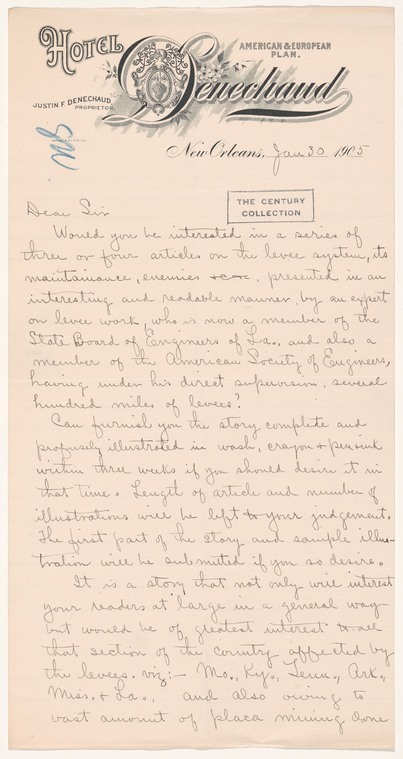 HOTEL Denechaud
AMERICAN & EUROPEAN
PLAN.
JUSTIN F. DENECHAUD,
PROPRIETOR.
New Orleans, Jan 30 1905
THE CENTURY
COLLECTION
Dear Sir
Would you be interested in a series of
three or four articles on the levee system, its
maintainance, enemies &c&c. presented in an
interesting and readable manner, by an expert
on levee work, who is now a member of the
State Board of Engineers of La., and also a
member of the American Society of Engineers,
having under his direct supervision, several
hundred miles of levees?
Can furnish you the story complete and
profusely illustrated in wash, crayon & pen & ink
within three weeks if you should desire it in
that time. Length of article and number of
illustrations will be left to your judgement.
The first part of the story and sample illus-
tration will be submitted if you so desire.
It is a story that not only will interest
your readers at large in a general way
but would be of greatest interest to all
that section of the country affected by
the levees. viz:- Mo., Ky., Tenn., Ark.,
Miss. & La., and also owing to
vast amount of placa mining done